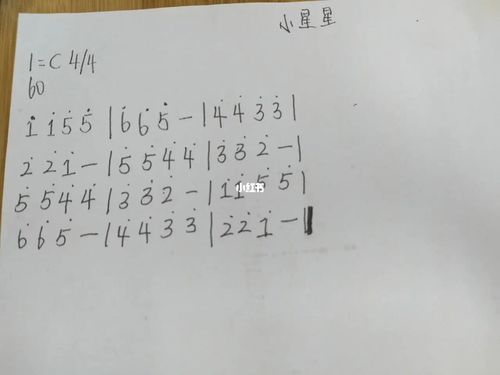 小星星
1=C 4/4
60
1̇ 1̇ 5̇ 5̇ | 6̇ 6̇ 5̇ - | 4̇ 4̇ 3̇ 3̇ |
2̇ 2̇ 1̇ - | 5̇ 5̇ 4̇ 4̇ | 3̇ 3̇ 2̇ - |
5̇ 5̇ 4̇ 4̇ | 3̇ 3̇ 2̇ - | 1̇ 1̇ 5̇ 5̇ |
6̇ 6̇ 5̇ - | 4̇ 4̇ 3̇ 3̇ | 2̇ 2̇ 1̇ - ‖
小红书